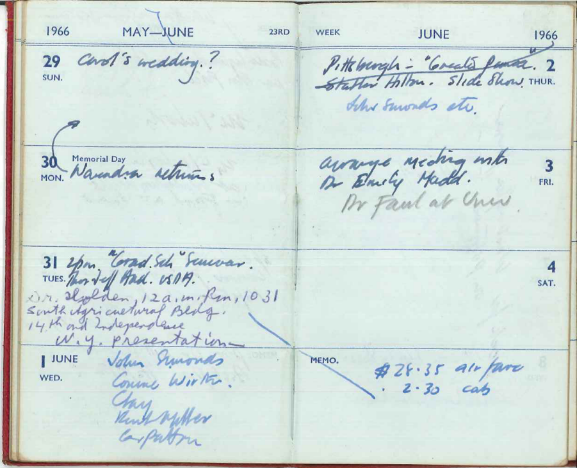 1966 MAY—JUNE 23RD
29 Carol's wedding?
SUN.
30 Memorial Day
MON. Narendra returns
31 2pm. "Grad. Sch" Seminar.
TUES. Aud. USDA.
Dr. Holden, 12 a.m. Rm, 1031
South Agricultural Bldg.
14th and Independence
N.Y. presentation
1 JUNE John Simonds
WED.
Clay
WEEK JUNE 1966
Pittsburgh - 2
Statler Hilton. Slide Show. THUR.
John Simonds etc.
arrange meeting with 3
Dr Emily Mudd. FRI.
Dr Paul at Univ
4
SAT.
MEMO. $28.35 air fare
2.30 cab